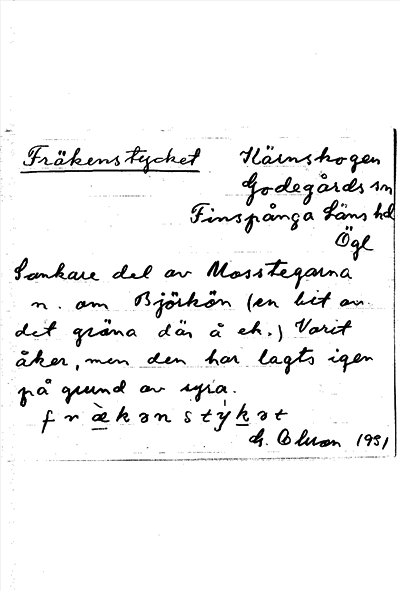 Fräkenstycket Kärnskogen
Godegårds sn
Finspånga Läns hd
Ögl
Sankare del av Mosstegarna
n. om Björkön (en bit av
det gröna där å ek.) Varit
åker, men den har lagts igen
på grund av syra.
frækənstýkət
G. Olson 1931